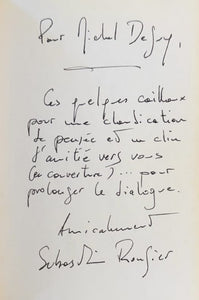 Pour Michel Deguy,
Ces quelques cailloux
pour une claudication
de pensée et un clin
d'amitié vers vous
(en couverture)... pour
prolonger le dialogue.
Amicalement
Sébastien Rongier